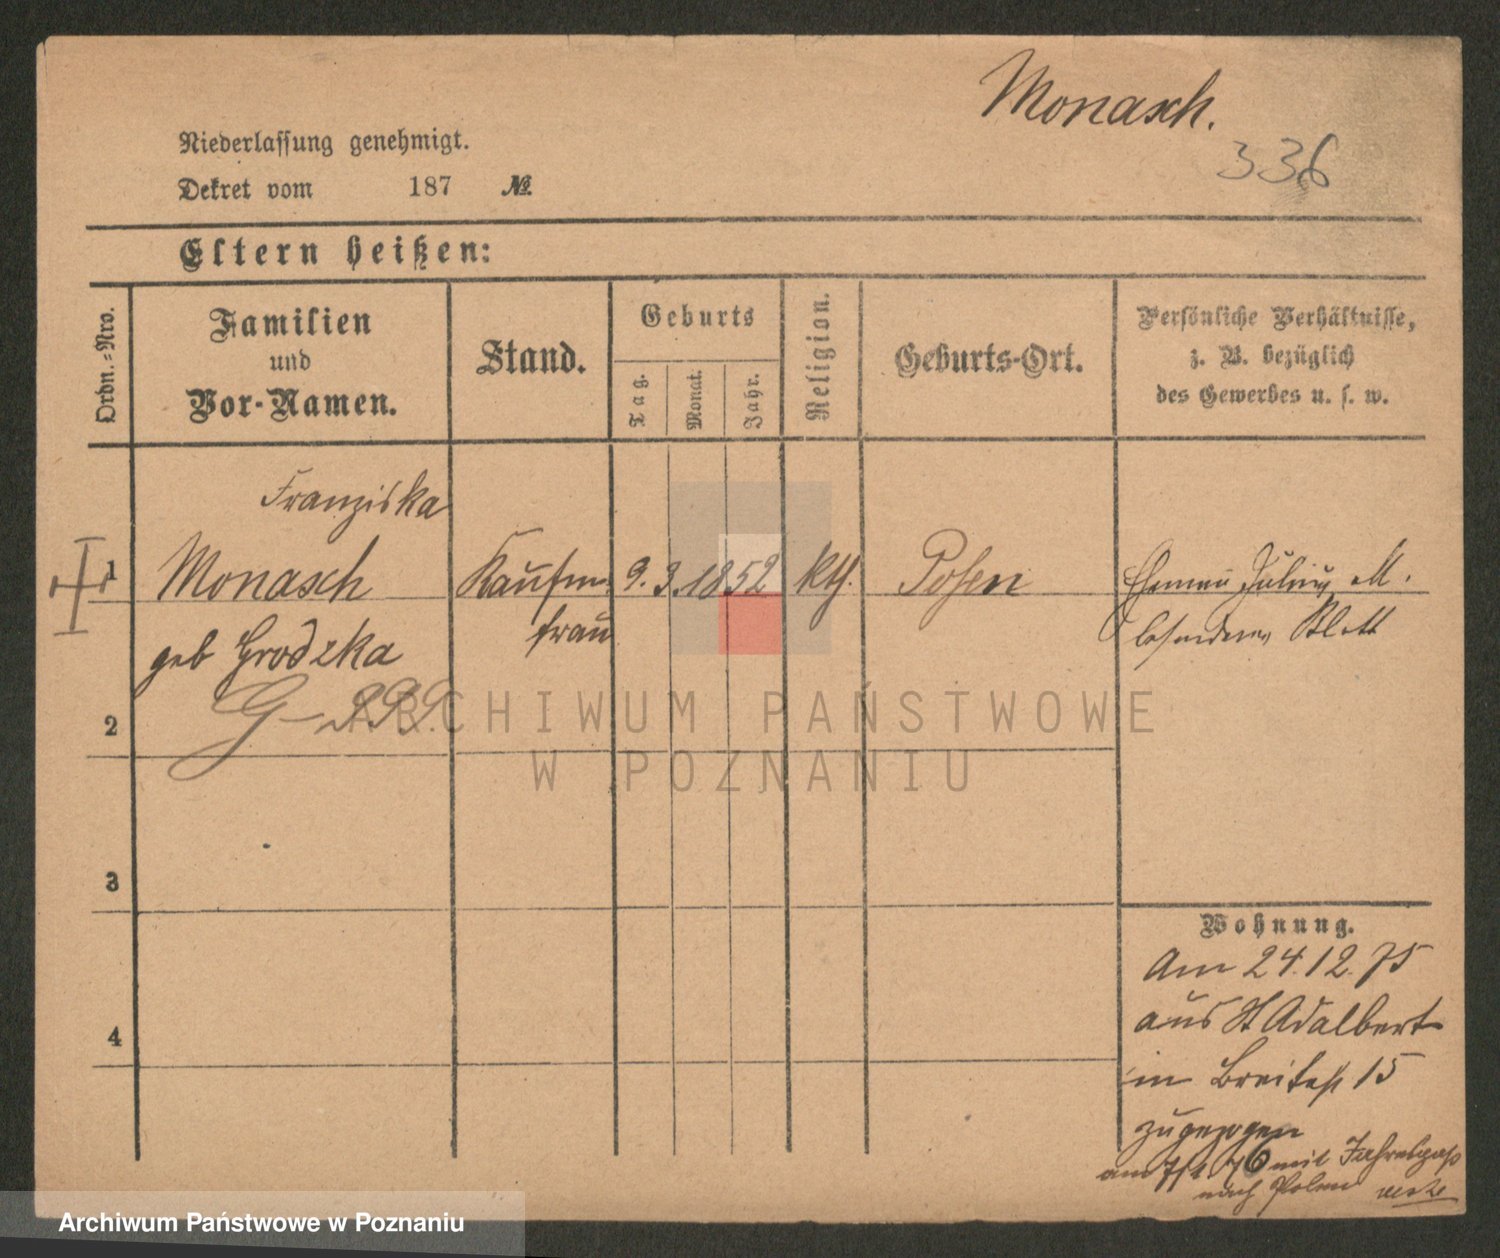 Monasch.
336
Niederlassung genehmigt.
Dekret vom 187 №
Eltern heißen:
Ordn.-Nro.
Familien
und
Vor-Namen.
Stand.
Geburts
Tag.
Monat.
Jahr.
Religion.
Geburts-Ort.
Persönliche Verhältnisse,
z. B. bezüglich
des Gewerbes u. s. w.
Franziska
1 Monasch Kaufm. 9. 3. 1852 kth. Posen Ehemann Julius M.
geb Grodzka frau besonderes Blatt
2
3
4
Wohnung.
Am 24.12.75
aus St Adalbert
in Breitestr 15
zugezogen
am 7/1 76 mit Jahrespaß
nach Polen
ARCHIWUM PAŃSTWOWE
W POZNANIU
Archiwum Państwowe w Poznaniu